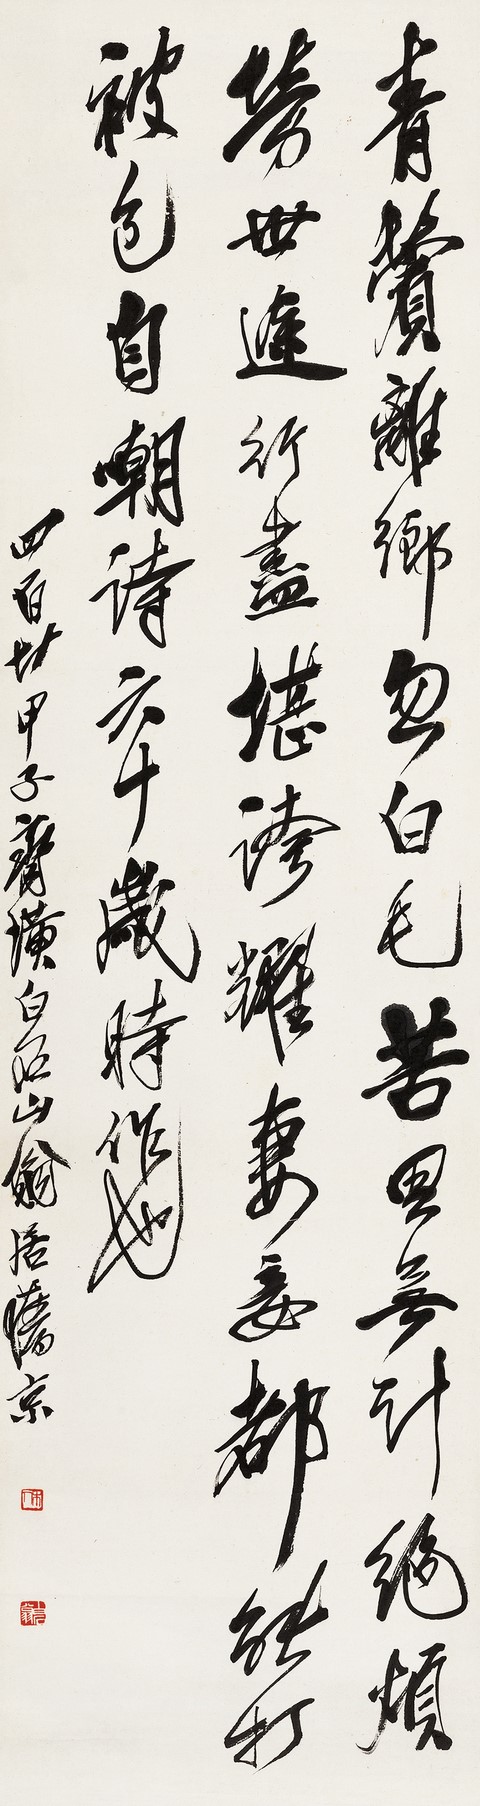 青鬢離鄉忽白毛苦思無計絕煩
勞世途行盡堪誇耀妻妾都能打
被包自嘲詩六十歲時作也
四百廿甲子齊璜白石山翁居舊京
木人